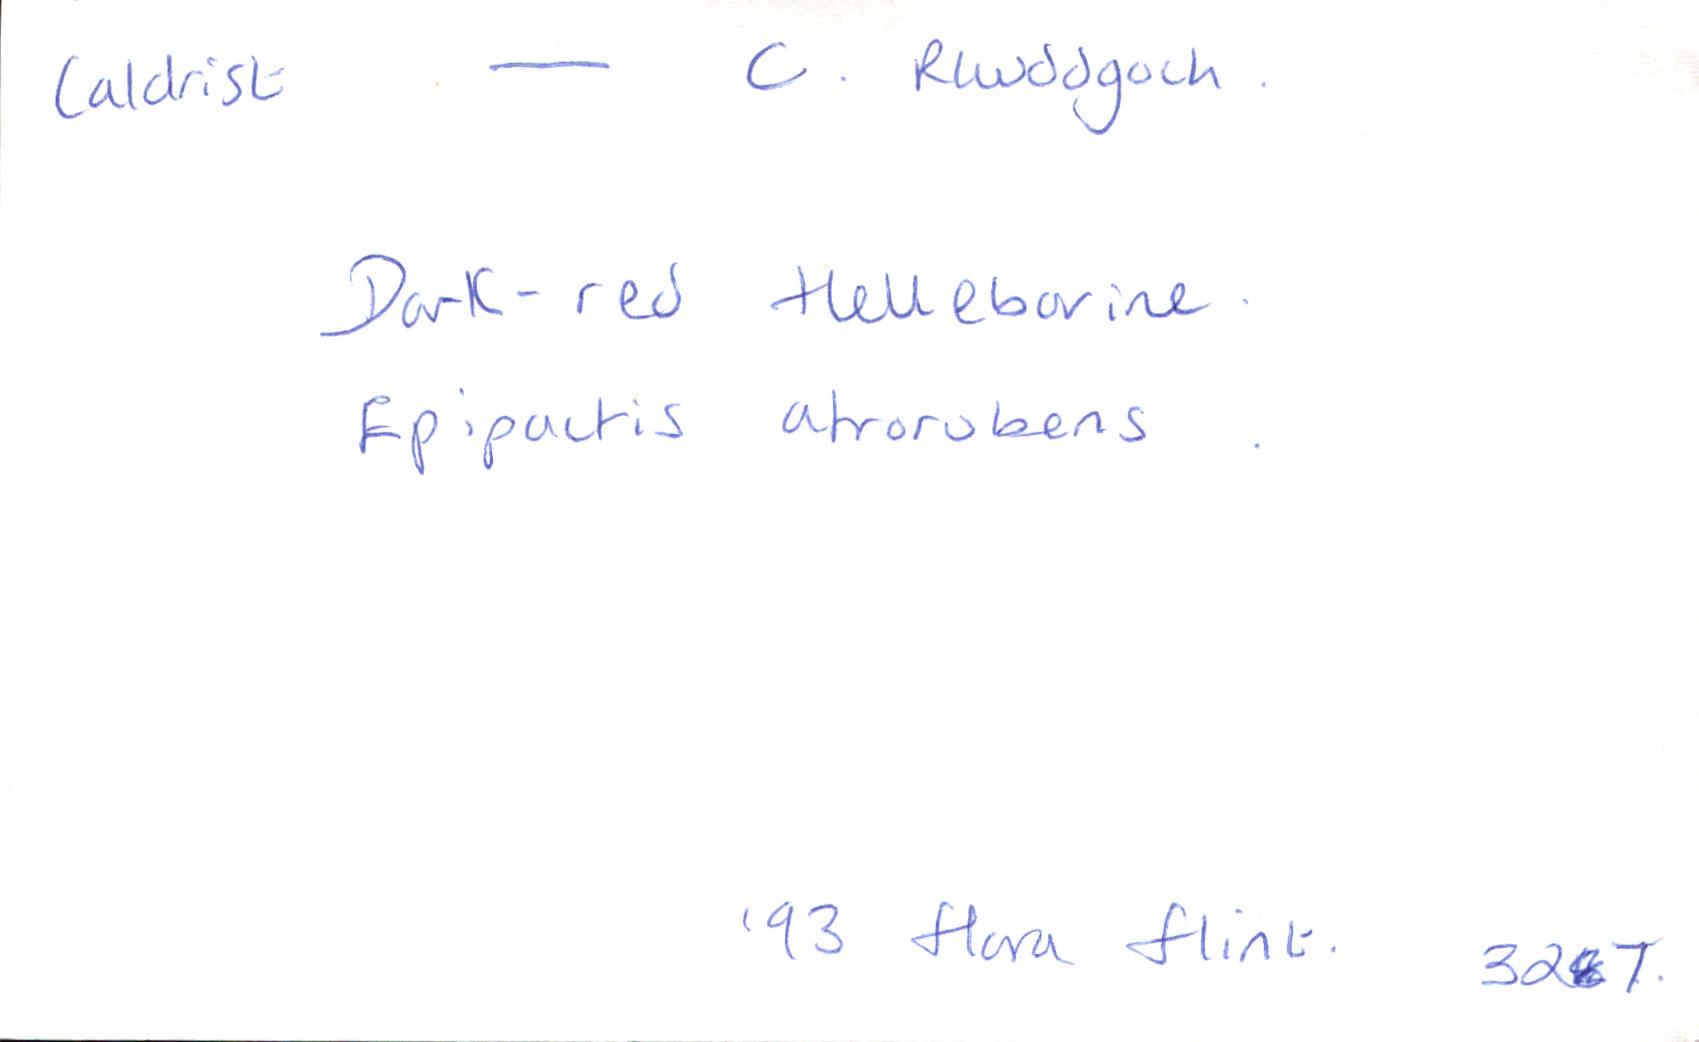 Caldrist — C. Rhuddgoch.
Dark-red Helleborine.
Epipactis atrorubens.
'93 flora flint.